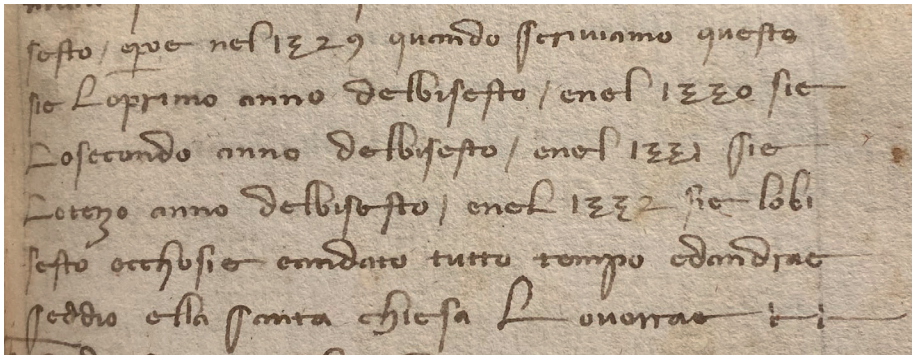 sesto / epoe nel 1329 quando scriviamo questo
sie Loprimo anno delbisesto / enel 1330 sie
Losecondo anno delbisesto / enel 1331 sie
Loterzo anno delbisesto / enel 1332 sie lobi
sesto ecchosie eandato tutto tempo edandrae
seddio ella santa chiesa L ovorrae